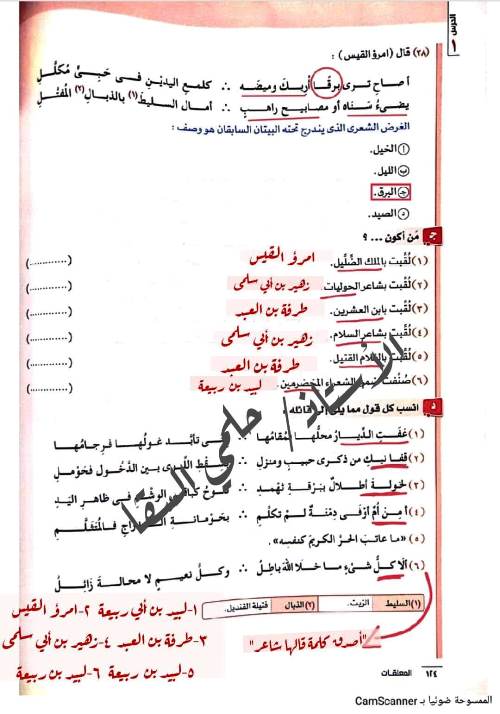 الدرس
١
(٢٨) قال (امرؤ القيس) :
أصاح ترى برقًا أريك وميضه ∴ كلمع اليدين فى حَبِىٍّ مُكلَّلِ
يضىءُ سَناه أو مصابيح راهبٍ ∴ أمال السليطَ(١) بالذبالِ(٢) المُفتَّلِ
الغرض الشعرى الذى يندرج تحته البيتان السابقان هو وصف :
أ الخيل.
ب الليل.
ج البرق.
د الصيد.
ج مَن أكون ... ؟
(١) لُقبت بالملك الضِّلِّيل. امرؤ القيس (............)
(٢) لُقبت بشاعر الحوليات. زهير بن أبي سلمى (............)
(٣) لُقبت بابن العشرين. طرفة بن العبد (............)
(٤) لُقبت بشاعر السلام. زهير بن أبي سلمى (............)
(٥) لُقبت بالغلام القتيل. طرفة بن العبد (............)
(٦) صُنفت ضمن الشعراء المخضرمين. لبيد بن ربيعة (............)
د انسب كل قول مما يلى إلى قائله :
(١) عَفَتِ الدِّيارُ محلُّها فمُقامُها ∴ بمنى تأبَّد غولُها فرجامُها
(٢) قفا نبكِ من ذكرى حبيبٍ ومنزلِ ∴ بسقط اللوى بين الدَّخُول فحَوْملِ
(٣) لخولةَ أطلالٌ ببُرْقةِ ثَهْمدِ ∴ تلوحُ كباقى الوشم فى ظاهر اليَدِ
(٤) أمِنْ أُمِّ أوْفَى دِمْنَةٌ لمْ تكلَّمِ ∴ بحَوْمانةِ الدَّرَّاجِ فالمُتَثَلَّمِ
(٥) «ما عاتبَ الحرَّ الكريمَ كنفسِه».
(٦) ألا كلُّ شىءٍ ما خلا اللهَ باطِلُ ∴ وكلُّ نعيمٍ لا محالةَ زَائِلُ
(١) السليط الزيت. (٢) الذبال فتيلة القنديل.
"أصدق كلمة قالها شاعر"
١-لبيد بن أبي ربيعة ٢-امرؤ القيس
٣-طرفة بن العبد ٤-زهير بن أبي سلمى
٥-لبيد بن ربيعة ٦-لبيد بن ربيعة
الأستاذ/ حلمي السقا
١٢٤ المعلقات
الممسوحة ضوئيا بـ CamScanner